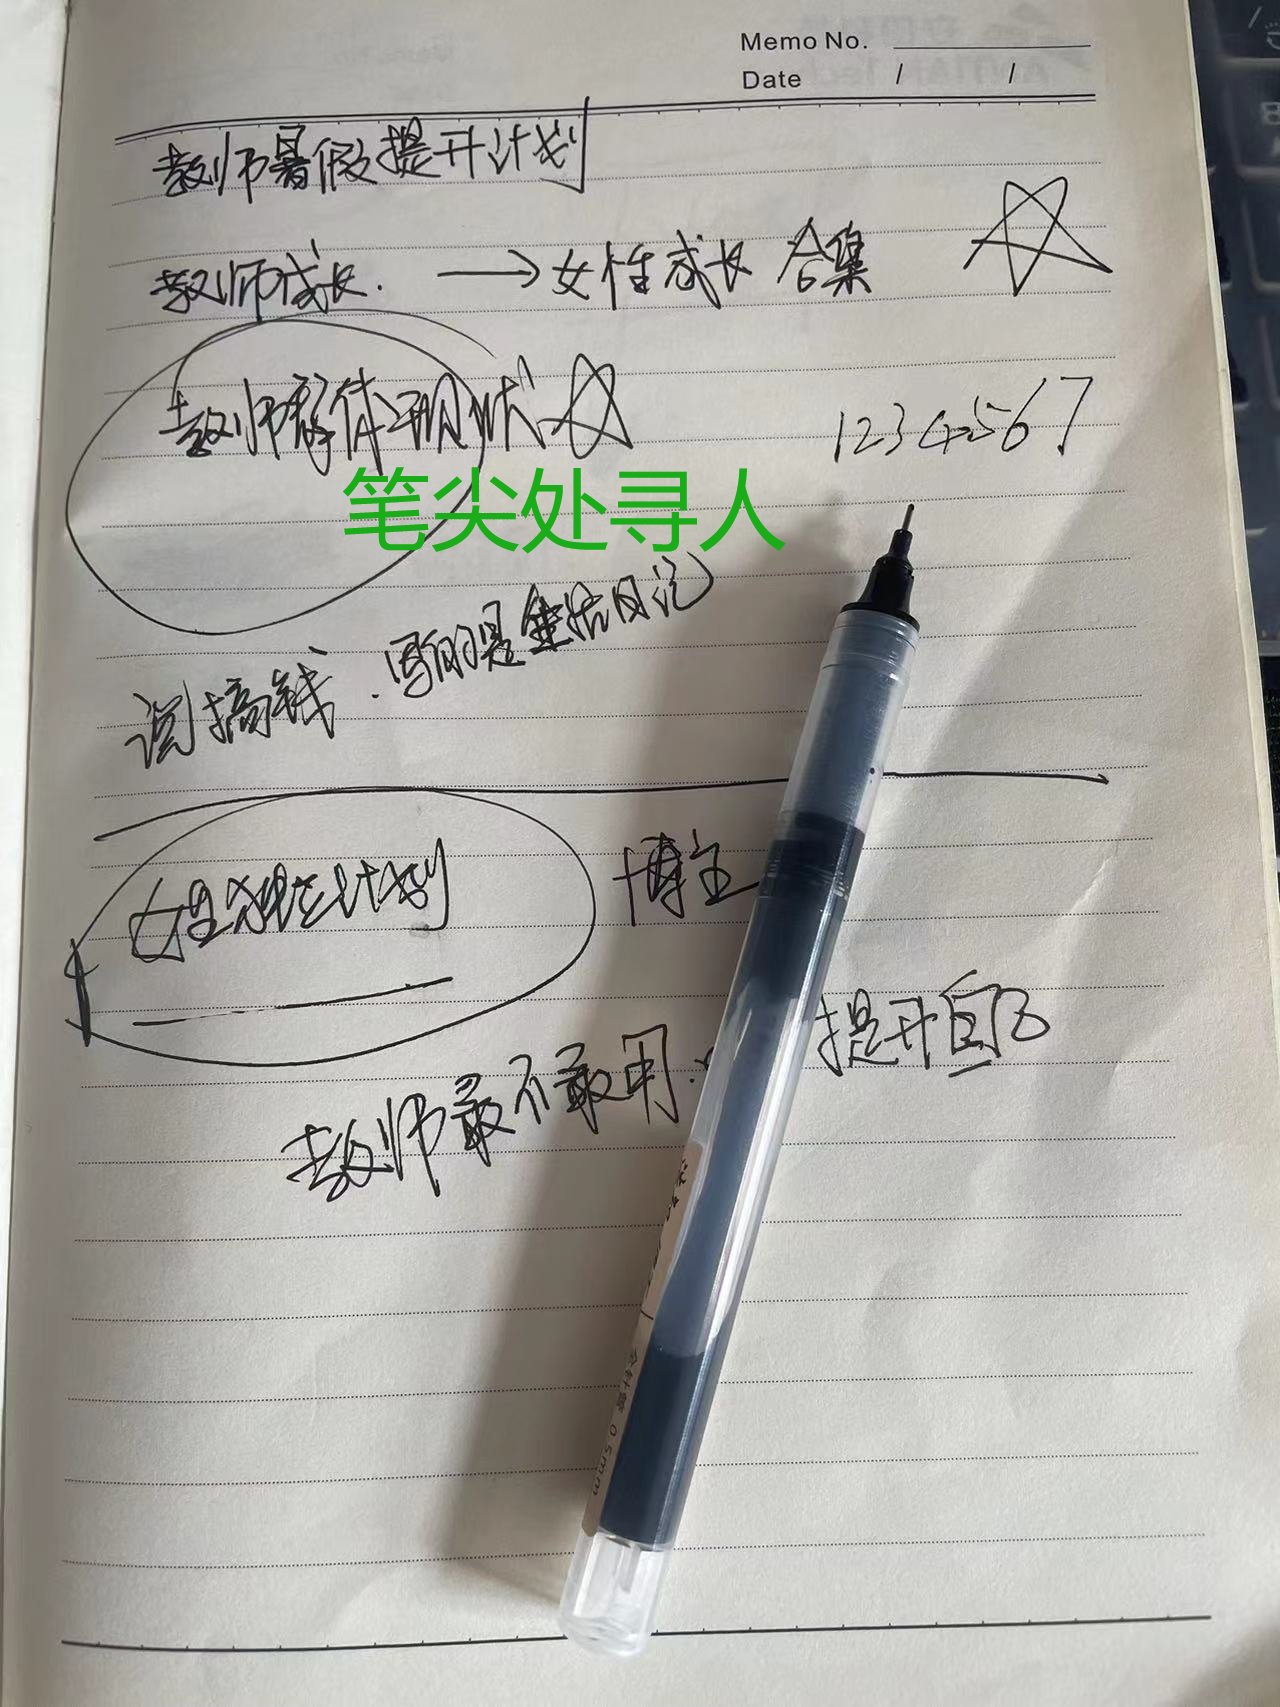 Memo No.
Date / /
教师暑假提升计划
教师成长. → 女性成长 合集
教师群体现状
1234567
笔尖处寻人
说搞钱.写的是生活日记
女性独立计划
博主
提升自己
教师最不敢用.
会针管 0.5mm